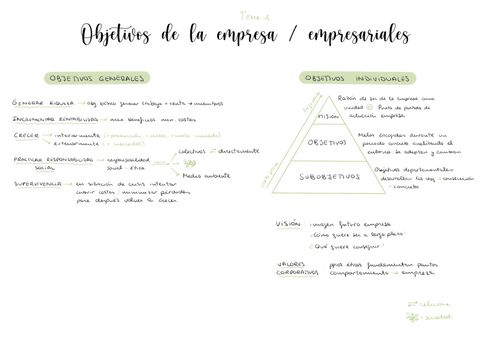 Tema 2
Objetivos de la empresa / empresariales
OBJETIVOS GENERALES
GENERAR RIQUEZA → obj
INCREMENTAR RENTABILIDAD → más beneficios men. costes
CRECER → internamente
externamente
PRACTICAR RESPONSABILIDAD SOCIAL → responsabilidad social - ética
colectivos directamente
Medio ambiente
SUPERVIVENCIA → en situación de crisis intentar
cubrir costes / minimizar pérdidas
para después volver a crecer
OBJETIVOS INDIVIDUALES
MISIÓN
Razón de ser de la empresa como
unidad Punto de partida de
actuación empresa
OBJETIVOS
Metas escogidas durante un
periodo concreto analizando el
entorno. Se adaptan y cambian
SUBOBJETIVOS
Objetivos departamentales
desarrollan los obj → consecución
+ concreto
VISIÓN: imagen futuro empresa
¿Cómo quiere ser a largo plazo?
¿Qué quiere conseguir?
VALORES CORPORATIVOS
ppos éticos fundamentan pautas
comportamiento → empresa